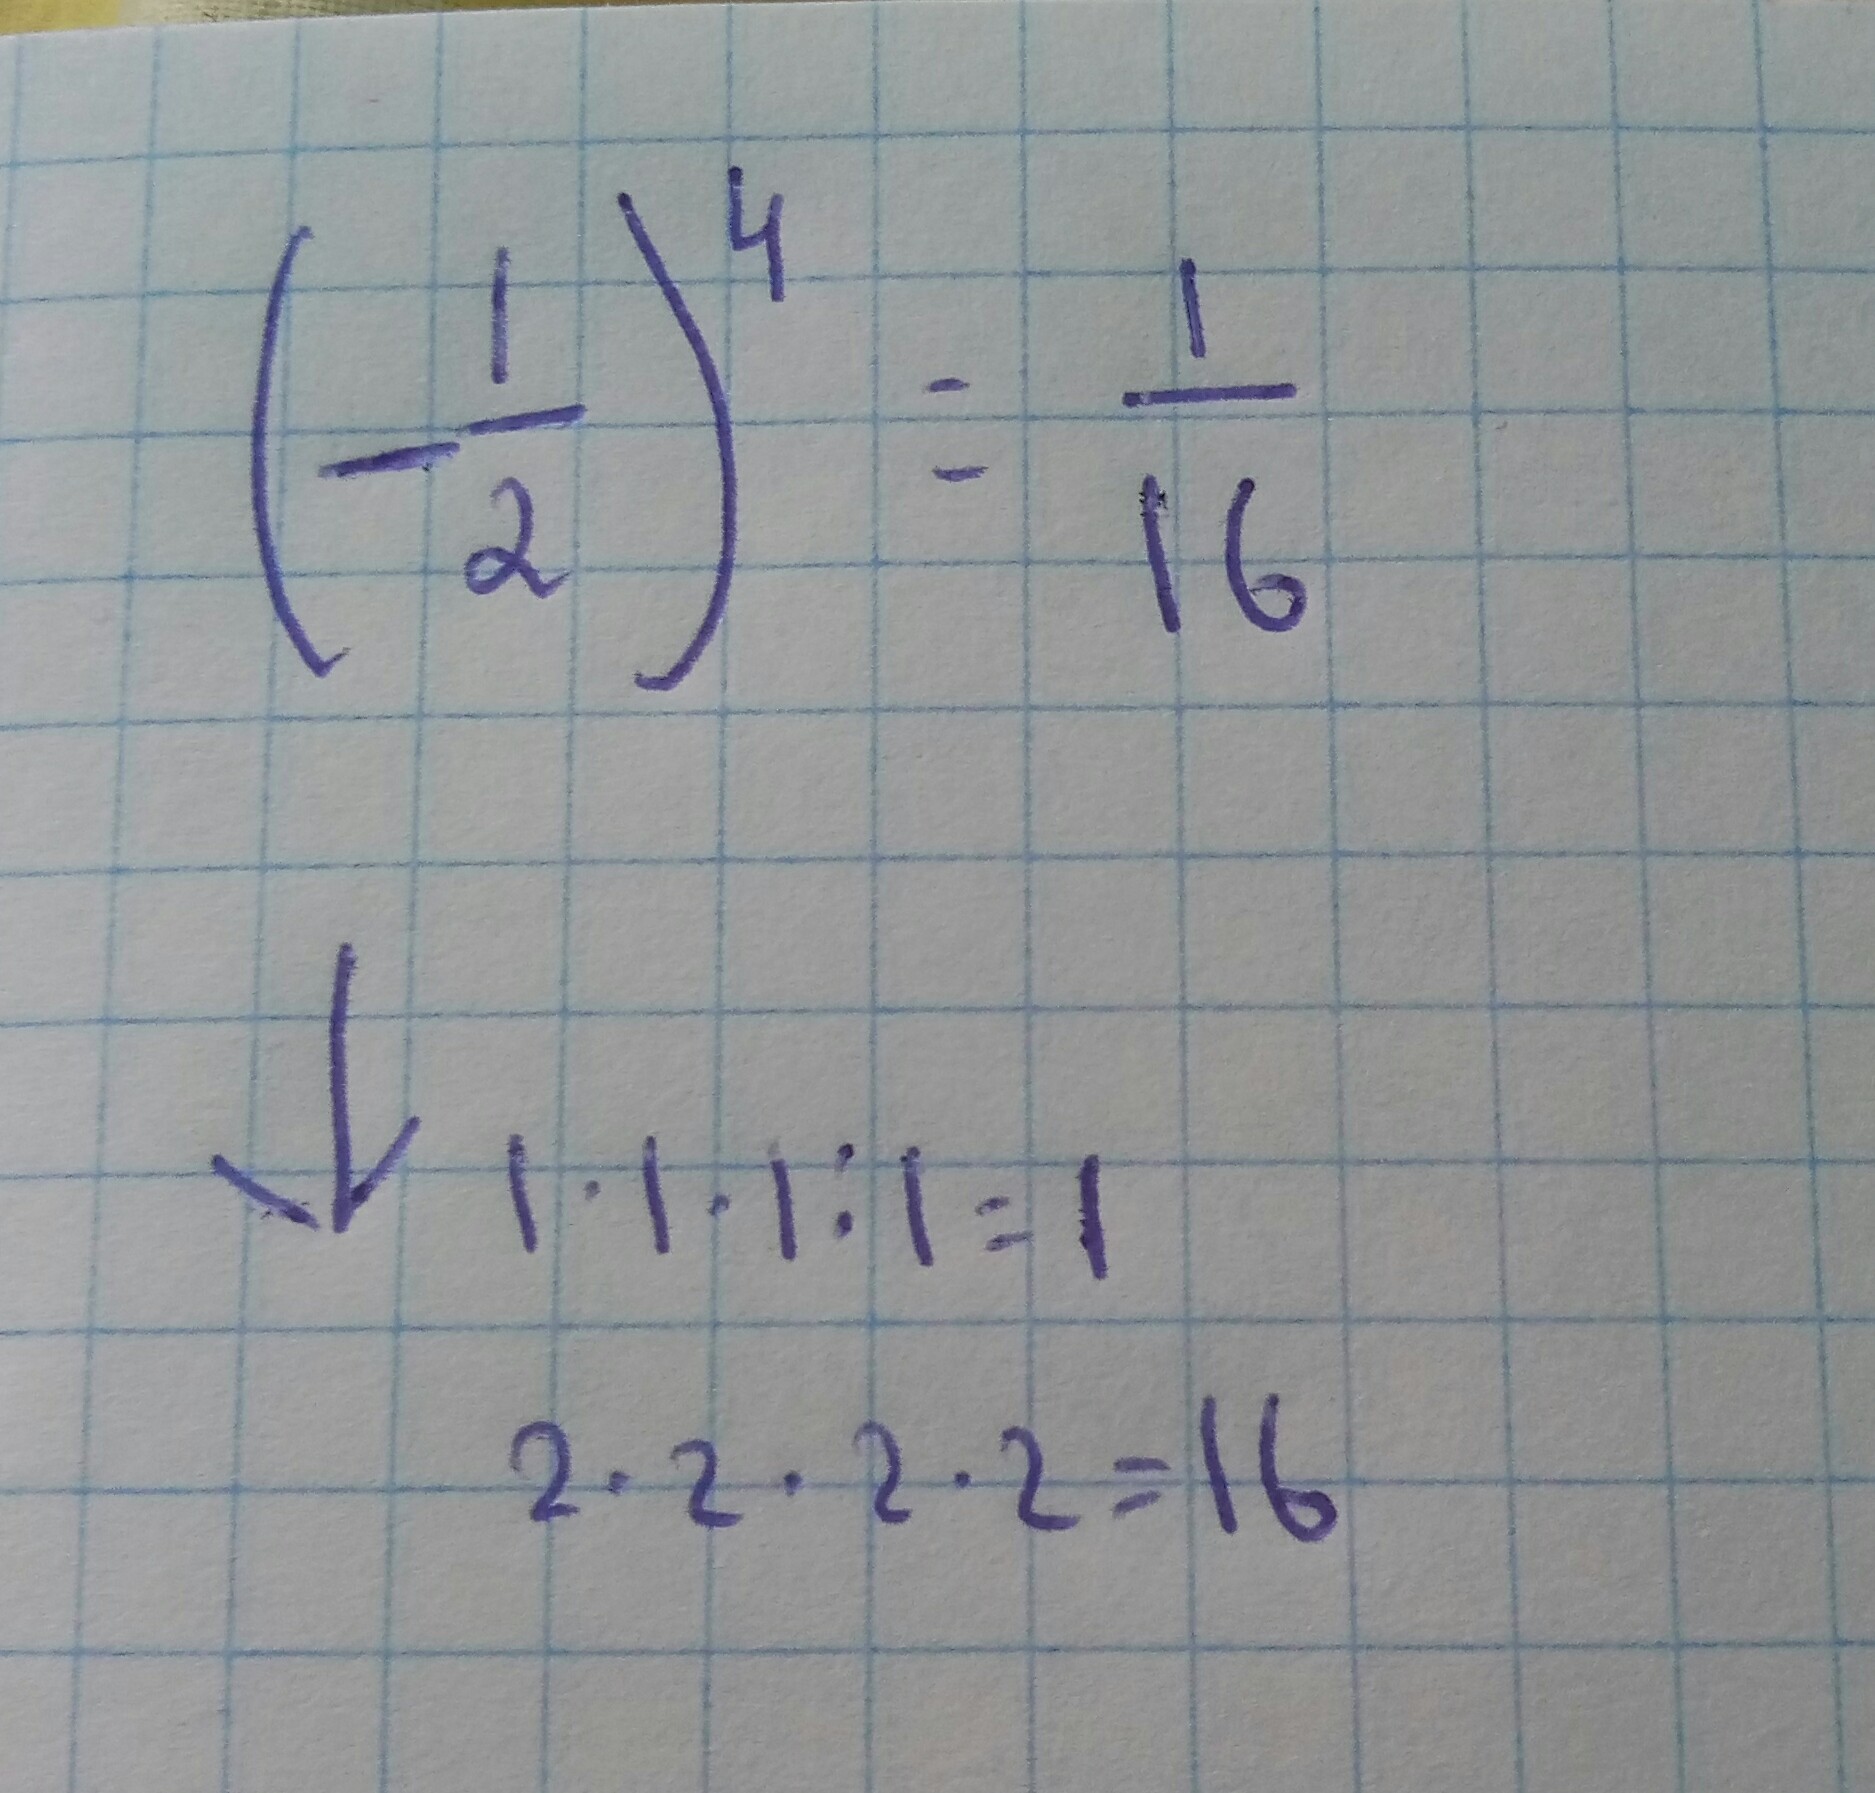 (-1/2)⁴ = 1/16
1·1·1:1=1
2·2·2·2=16